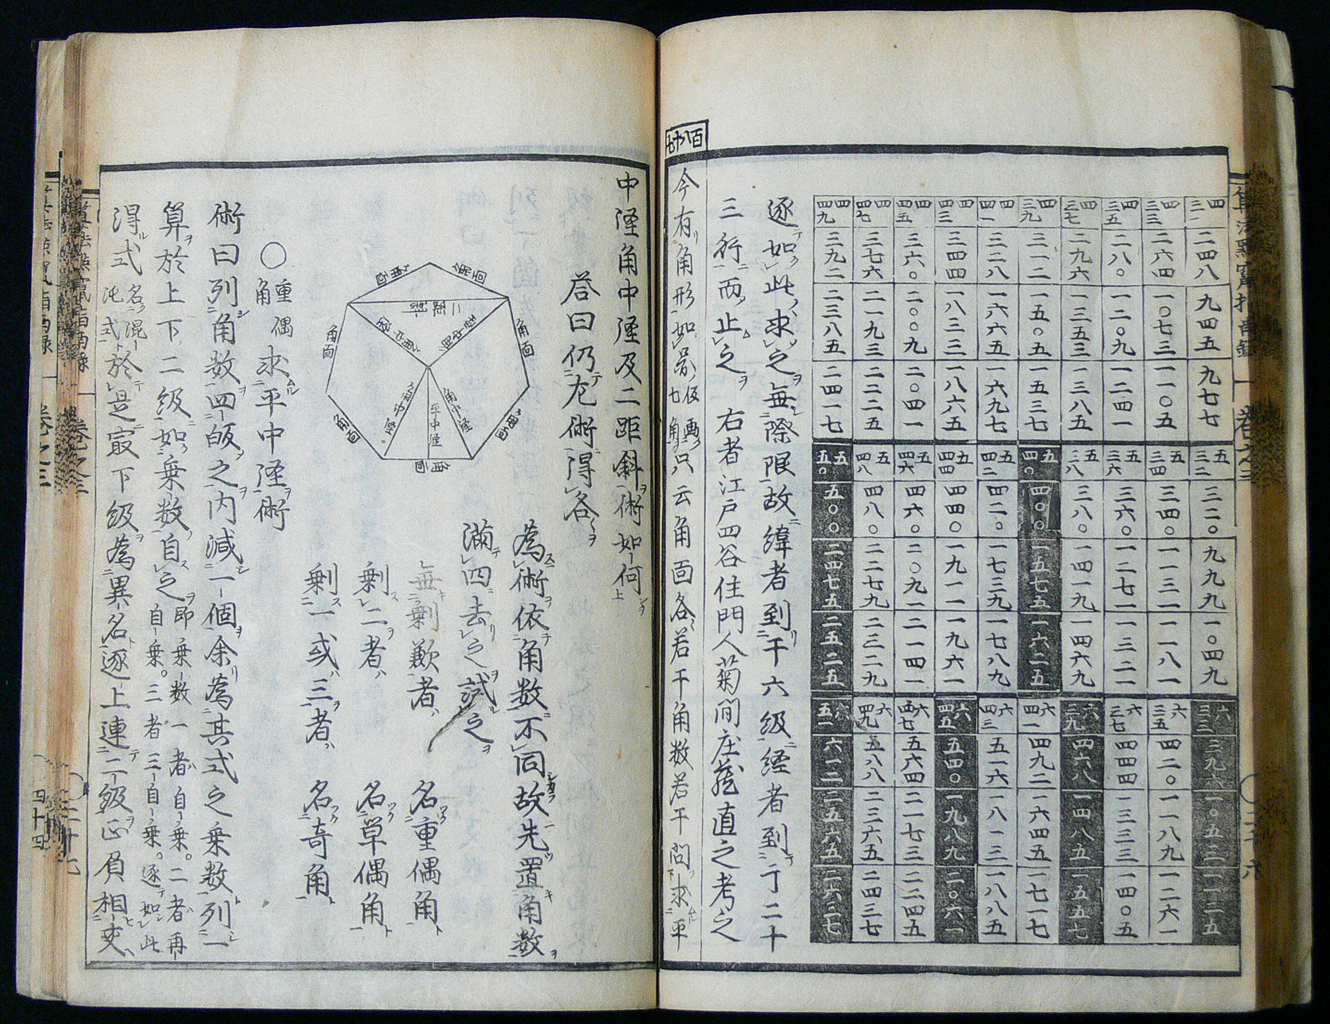 算法點竄指南録 一 卷之三 ○二十六
四 三一 二四八 九四五 九七七
四 三三 二六四 一〇七三 一一〇五
四 三五 二八〇 一二〇九 一二四一
四 三七 二九六 一三五三 一三八五
四 三九 三一二 一五〇五 一五三七
四 四一 三二八 一六六五 一六九七
四 四三 三四四 一八三三 一八六五
四 四五 三六〇 二〇〇九 二〇四一
四 四七 三七六 二一九三 二二二五
四 四九 三九二 二三八五 二四一七
五 三二 三二〇 九九九 一〇四九
五 三四 三四〇 一一三一 一一八一
五 三六 三六〇 一二七一 一三二一
五 三八 三八〇 一四一九 一四六九
五 四〇 四〇〇 一五七五 一六二五
五 四二 四二〇 一七三九 一七八九
五 四四 四四〇 一九一一 一九六一
五 四六 四六〇 二〇九一 二一四一
五 四八 四八〇 二二七九 二三二九
五 五〇 五〇〇 二四七五 二五二五
六 三三 三九六 一〇五三 一一二五
六 三五 四二〇 一一八九 一二六一
六 三七 四四四 一三三三 一四〇五
六 三九 四六八 一四八五 一五五七
六 四一 四九二 一六四五 一七一七
六 四三 五一六 一八一三 一八八五
六 四五 五四〇 一九八九 二〇六一
六 四七 五六四 二一七三 二二四五
六 四九 五八八 二三六五 二四三七
六 五一 六一二 二五六五 二六三七
逐如此求之無際限故緯者到于六級経者到于二十
三行而止之 右者江戸四谷住門人菊間庄藏直之考之
百八十七
今有角形如圖仮画七角只云角面各若干角数若干問求平
中径角中径及二距斜術如何
荅曰仍左術得各
為術依角数不同故先置角数
満四去之試之
無剰歟者 名重偶角
剰二者 名草偶角
剰一或三者 名奇角
角面
角面
角面
角面
角面
角面
角面
二距斜
角中径
角中径
角中径
角中径
平中径
○重偶角求平中径術
術曰列角数四皈之内減一個余為其式之乗数列一
算於上下二級如乗数自之即乗数一者自乗。二者再自乗。三者三自乗。逐如此
得式名混沌式於是最下級為異名逐上連二級正負相夾
卷之三
二十七
卷之三
四十四